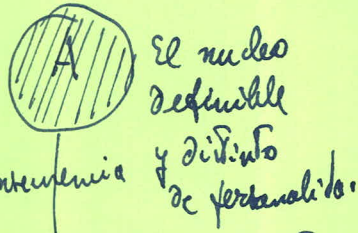 A
El nucleo
definible
y distinto
de personalidad.